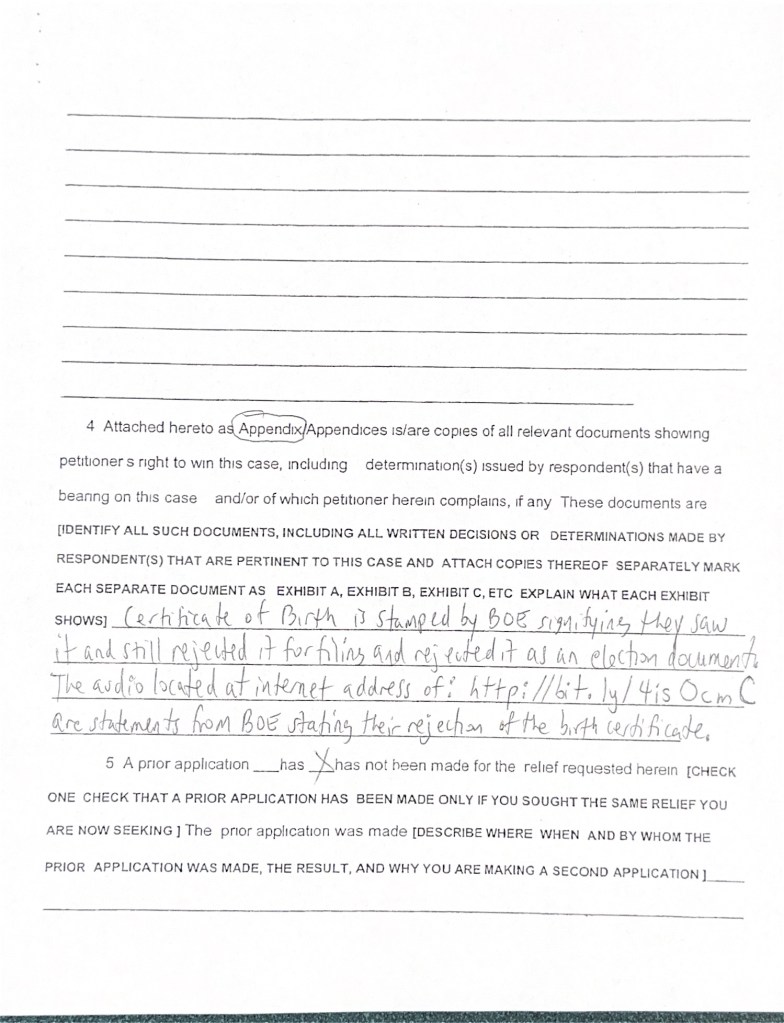 4 Attached hereto as Appendix/Appendices is/are copies of all relevant documents showing
petitioner s right to win this case, including determination(s) issued by respondent(s) that have a
bearing on this case and/or of which petitioner herein complains, if any These documents are
[IDENTIFY ALL SUCH DOCUMENTS, INCLUDING ALL WRITTEN DECISIONS OR DETERMINATIONS MADE BY
RESPONDENT(S) THAT ARE PERTINENT TO THIS CASE AND ATTACH COPIES THEREOF SEPARATELY MARK
EACH SEPARATE DOCUMENT AS EXHIBIT A, EXHIBIT B, EXHIBIT C, ETC EXPLAIN WHAT EACH EXHIBIT
SHOWS] Certificate of Birth is stamped by BOE signifying they saw
it and still rejected it for filing and rejected it as an election document.
The audio located at internet address of: http://bit.ly/4isOcmC
are statements from BOE stating their rejection of the birth certificate.
5 A prior application ___has X has not been made for the relief requested herein [CHECK
ONE CHECK THAT A PRIOR APPLICATION HAS BEEN MADE ONLY IF YOU SOUGHT THE SAME RELIEF YOU
ARE NOW SEEKING ] The prior application was made [DESCRIBE WHERE WHEN AND BY WHOM THE
PRIOR APPLICATION WAS MADE, THE RESULT, AND WHY YOU ARE MAKING A SECOND APPLICATION ]